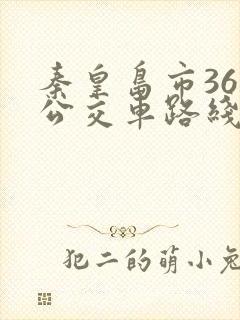 秦皇岛市36
公交车路线
犯二的萌小兔